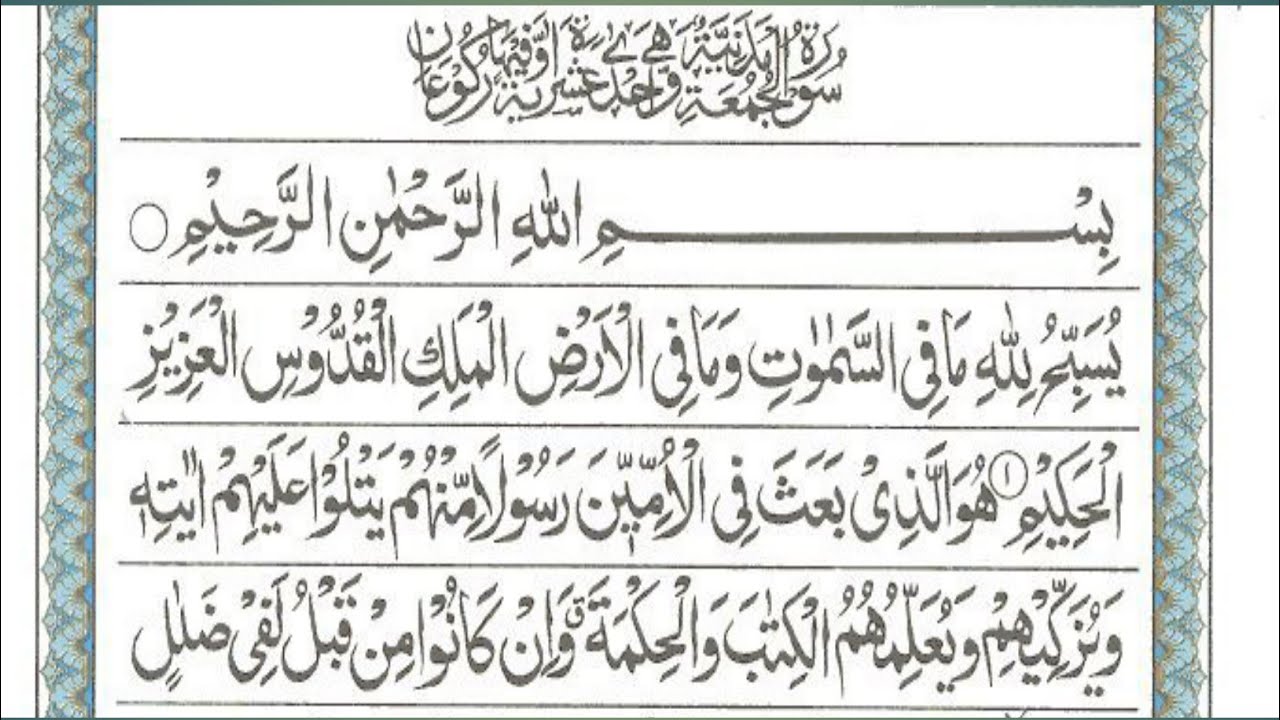 سُوْرَةُ الْجُمُعَةِ مَدَنِيَّةٌ وَّهِيَ اِحْدٰى عَشْرَةَ اٰيَةً وَّفِيْهَا رُكُوْعَانِ
بِسْمِ اللهِ الرَّحْمٰنِ الرَّحِيْمِ
يُسَبِّحُ لِلّٰهِ مَا فِى السَّمٰوٰتِ وَمَا فِى الْاَرْضِ الْمَلِكِ الْقُدُّوْسِ الْعَزِيْزِ
الْحَكِيْمِ ۱ هُوَ الَّذِىْ بَعَثَ فِى الْاُمِّيّٖنَ رَسُوْلًا مِّنْهُمْ يَتْلُوْا عَلَيْهِمْ اٰيٰتِهٖ
وَيُزَكِّيْهِمْ وَيُعَلِّمُهُمُ الْكِتٰبَ وَالْحِكْمَةَ ۗ وَاِنْ كَانُوْا مِنْ قَبْلُ لَفِىْ ضَلٰلٍ